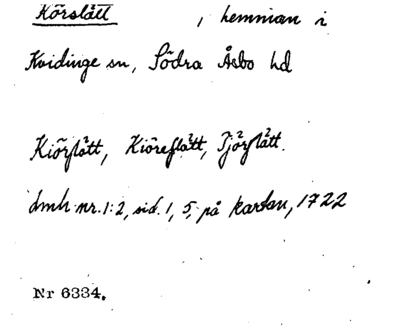 Körslätt, hemman i
Kvidinge sn, Södra Åsbo hd
Kiörslätt, Kiöreslätt, Tjörslätt.
dmh nr. 1:2, sid. 1, 5, på kartan, 1722
Nr 6334.